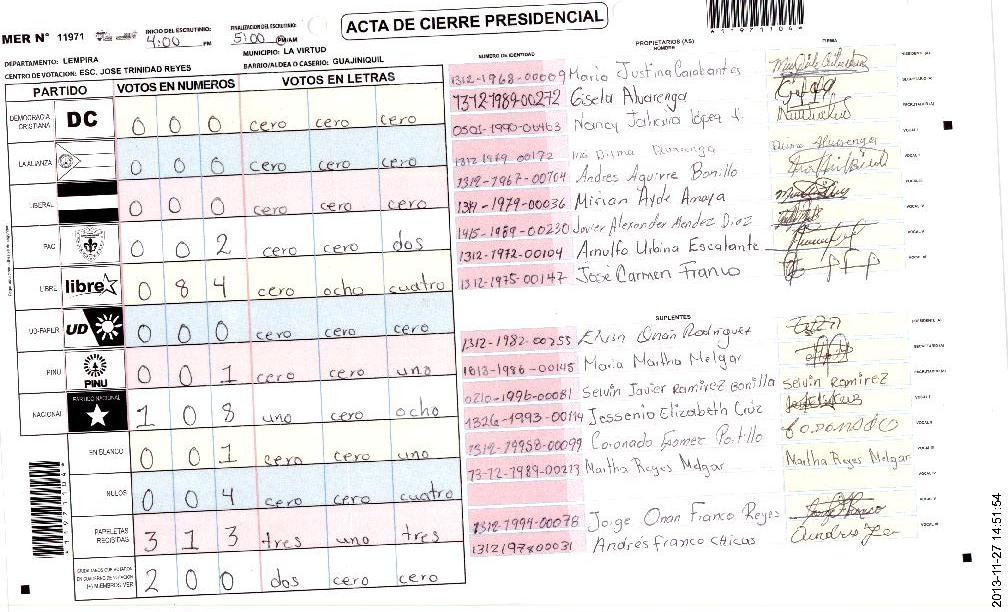 ACTA DE CIERRE PRESIDENCIAL
MER N° 11971
INICIO DEL ESCRUTINIO: 4:00 PM
FINALIZACION DEL ESCRUTINIO: 5:00 PM/AM
DEPARTAMENTO: LEMPIRA
MUNICIPIO: LA VIRTUD
CENTRO DE VOTACION: ESC. JOSE TRINIDAD REYES
BARRIO/ALDEA O CASERIO: GUAJINIQUIL
PARTIDO VOTOS EN NUMEROS VOTOS EN LETRAS
DEMOCRACIA CRISTIANA DC 0 0 0 cero cero cero
LA ALIANZA 0 0 0 cero cero cero
LIBERAL 0 0 0 cero cero cero
PAC 0 0 2 cero cero dos
LIBRE libre 0 8 4 cero ocho cuatro
UD-FAPER UD 0 0 0 cero cero cero
PINU PINU 0 0 1 cero cero uno
NACIONAL PARTIDO NACIONAL 1 0 8 uno cero ocho
EN BLANCO 0 0 1 cero cero uno
NULOS 0 0 4 cero cero cuatro
PAPELETAS RECIBIDAS 3 1 3 tres uno tres
2 0 0 dos cero cero
PROPIETARIOS (AS)
NUMERO DE IDENTIDAD NOMBRE FIRMA
1312-1968-00009 Maria Justina
1312-1989-00272 Gisela Alvarenga
0501-1990-00463 Nancy López
1312 1969 00172 Dilma
1312-1967-00704 Andres Aguirre Bonillo
1979-00036 Mirian Ayde Amaya
1415-1989-00230 Javier Alexander Mendez Diaz
1312-1972-00104 Arnulfo Urbina Escalante
1312-1975-00147 José Carmen Franco
SUPLENTES
1312-1982-00255 Elvin Onan Rodriguez
1613-1986-00145 Maria Martha Melgar
0210-1996-00081 Selvin Javier Ramirez Bonilla Selvin Ramirez
1326-1993-00114 Jessenio Elizabeth Cruz
00099 Coronado Gomez Portillo
1989-00213 Martha Reyes Melgar Martha Reyes Melgar
1312-1994-00078 Jorge Onan Franco Reyes
1312197800031 Andrés Franco Chicas
2013-11-27 14:51:54